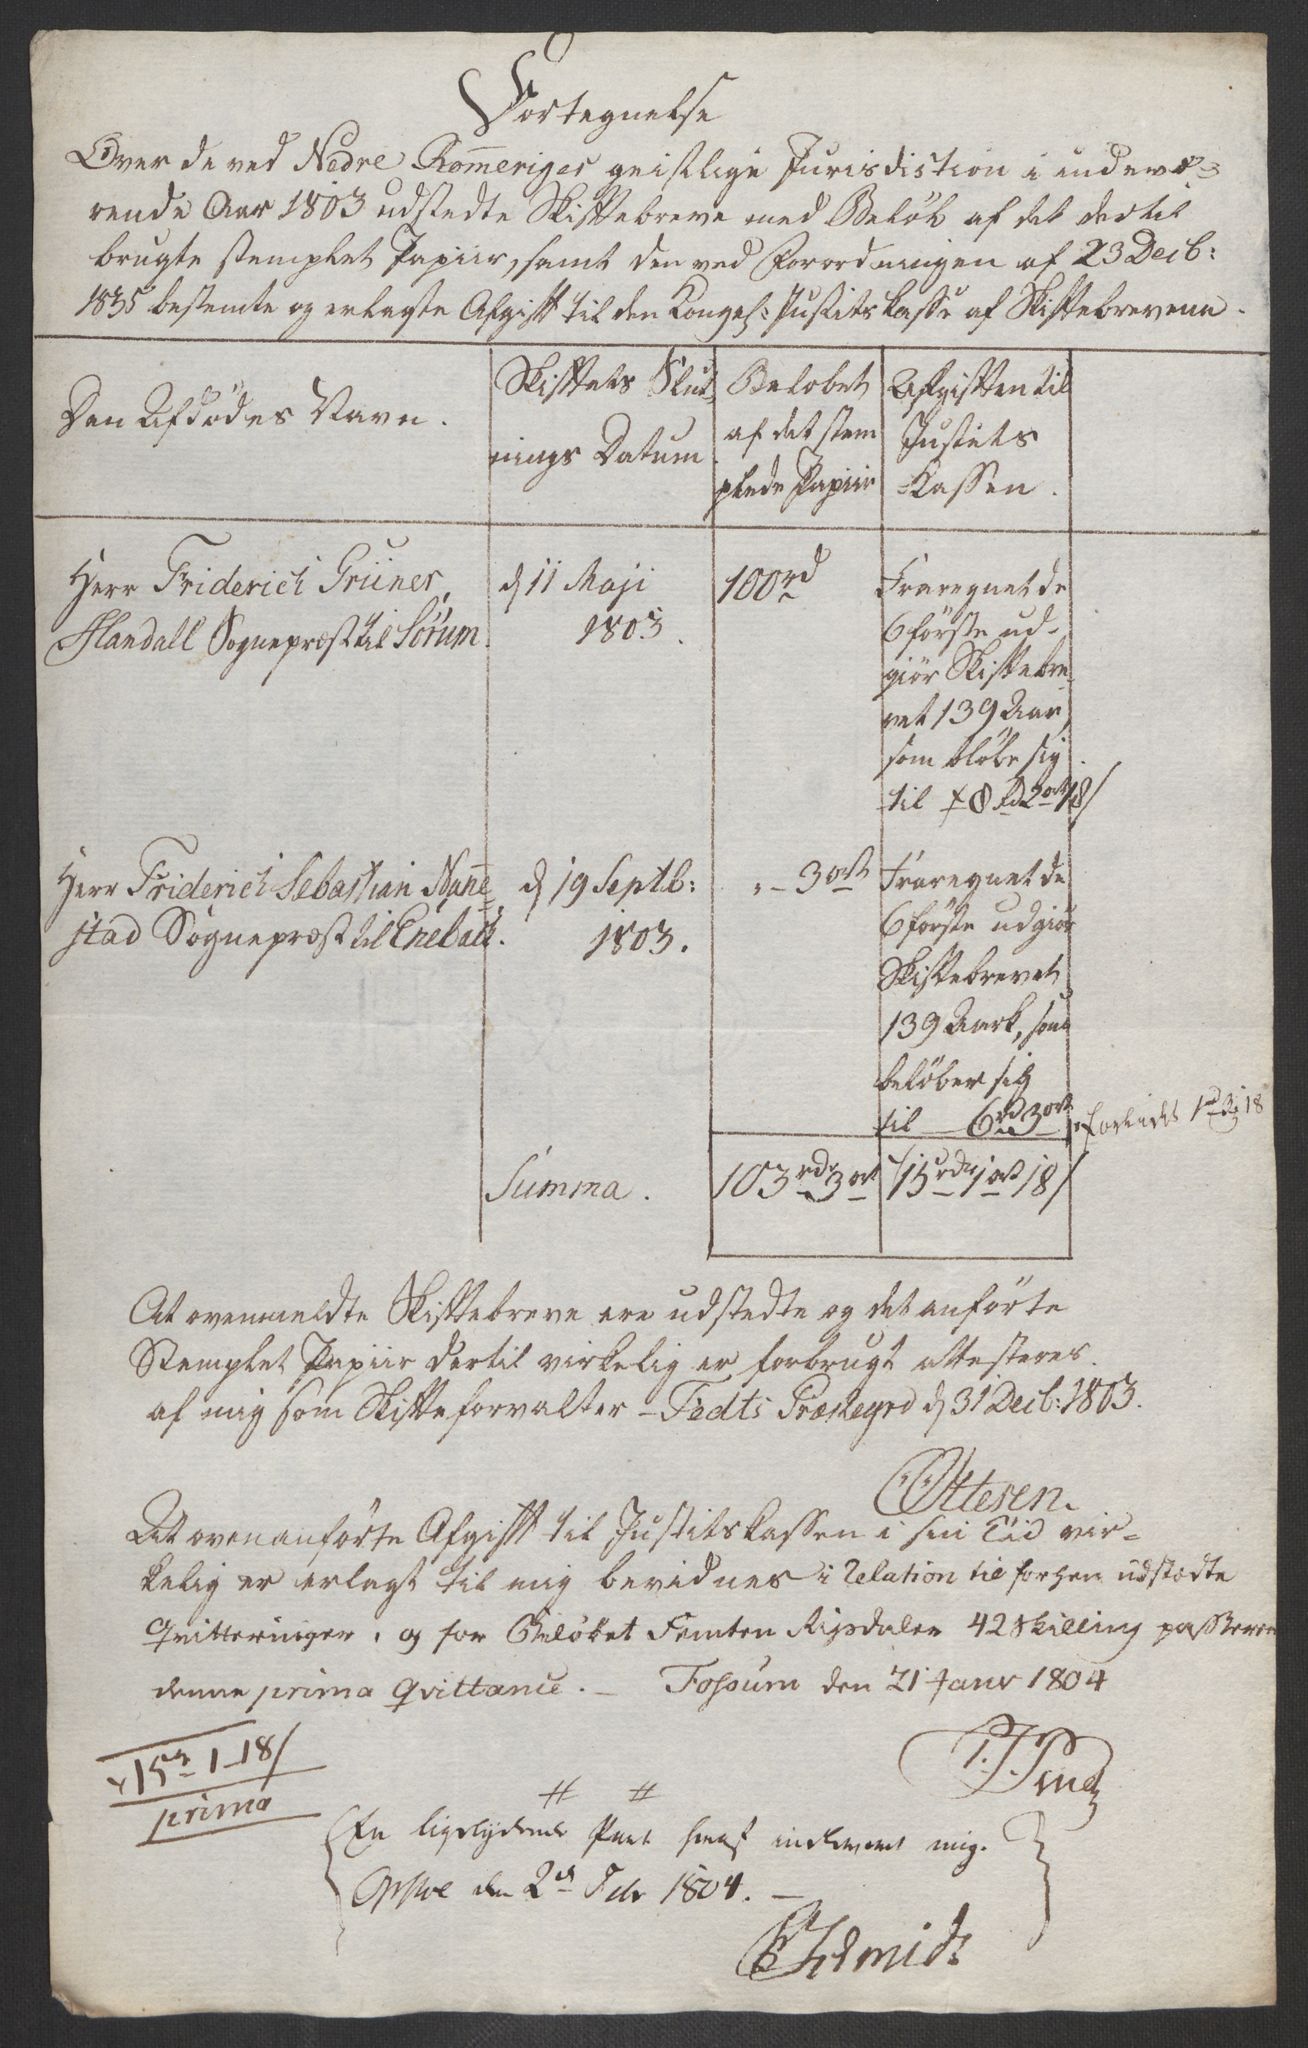 Fortegnelse
Over de ved Nedre Rom̄eriges geistlige Jurisdiction i indevæ-
rende Aar 1803 udstedte Skiftebreve med Beløb af det dertil
brugte stemplet Papiir, samt den ved Forordningen af 23 Decb:
1735 bestemte og erlagte Afgift til den Kongel: Justits Kasse af Skiftebrevene.
Den Afdødes Navn.
Skiftets Slut
nings Datum
Beløbet
af det stem
plede Papiir
Afgiften til
Justits
Kassen.
Herr Friderich Grüner,
Flandall Sognepræst til Sørum.
d 11 Maji
1803.
100 rd
Fraregnet de
6 første ud-
giør Skiftebre
vet 139 Aar,
som bløbe sig
til 8 rd 2 ort 18 s
Herr Friderich Sebastian Nan̄e
stad Sognepræst til Enebak.
d 19 Septb:
1803.
" - 3 ort
Fraregnet de
6 første udgiør
Skiftebrevet
139 Aark, som
beløber sig
til 6 rd 3 ort
Summa.
103 rd 3 ort
15 rd 1 ort 18 s
At ovenmeldte Skiftebreve ere udstedte og det anførte
Stemplet Papiir dertil virkelig er forbrugt attesteres
af mig som Skifteforvalter - Fedts Præstegrd d 31 Decb: 1803.
Ottesen.
At ovenanførte Afgift til Justitskassen i sin Tiid vir-
kelig er erlagt til mig bevidnes i Relation til forhen udstædte
Qvitteringer, og for Beløbet Femten Rigsdaler 42 Skilling passerer
denne prima Qvittance. - Fossum den 21 Janr 1804
15 rd 1 - 18 s
prima
En ligelydende Part har indleveret mig.
den 2d Febr 1804. -
Schmidt